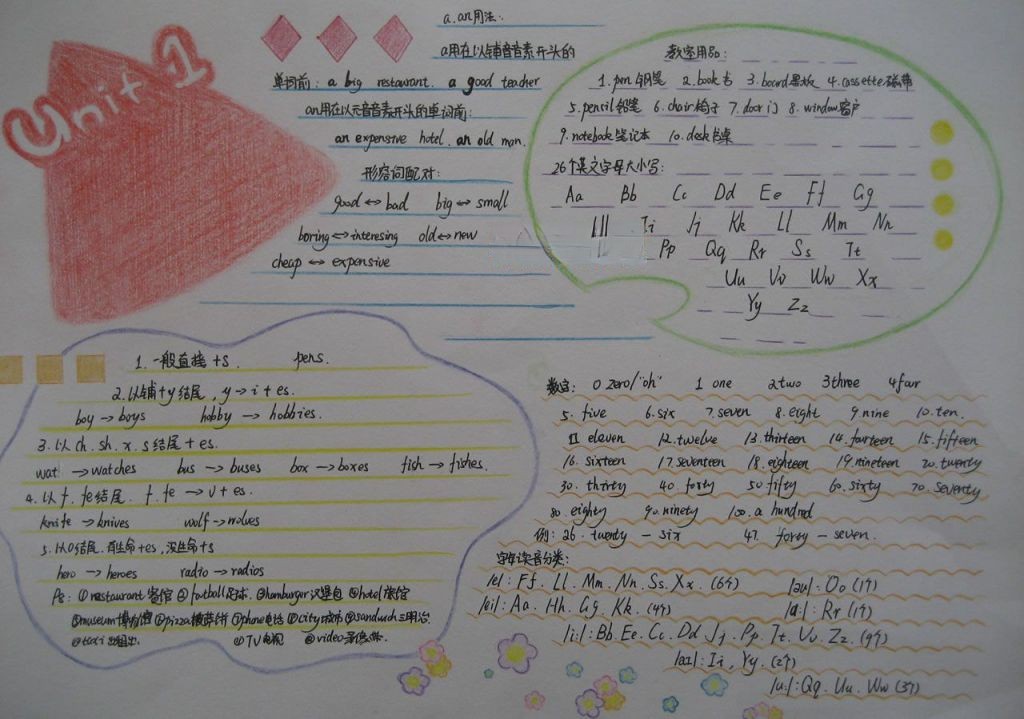 Unit 1
a.an用法:
a用在以辅音音素开头的
单词前: a big restaurant. a good teacher
an用在以元音音素开头的单词前:
an expensive hotel. an old man.
形容词配对:
good ↔ bad big ↔ small
boring ↔ interesing old ↔ new
cheap ↔ expensive
教室用品:
1.pen 钢笔 2.book 书 3.board黑板 4.cassette磁带
5.pencil铅笔 6.chair椅子 7.door门 8.window窗户
9.notebook笔记本 10.desk书桌
26个英文字母大小写:
Aa Bb Cc Dd Ee Ff Gg
Ii Jj Kk Ll Mm Nn
Pp Qq Rr Ss Tt
Uu Vv Ww Xx
Yy Zz
1.一般直接+s. pens.
2.以辅+y结尾, y→i+es.
boy→boys hobby→hobbies.
3.以ch.sh.x.s结尾+es.
wat →watches bus→buses box→boxes fish→fishes.
4.以f.fe结尾. f.fe→v+es.
knife→knives wolf→wolves
5.以o结尾.有生命+es,没生命+s
hero→heroes radio→radios
Ps: ①restaurant餐馆 ②football足球. ③hamburger汉堡包 ④hotel旅馆
⑤museum博物馆 ⑥pizza披萨饼 ⑦phone电话 ⑧city城市 ⑨sanduich三明治.
⑩taxi出租车. ⑪TV电视 ⑫video录像带.
数字: 0 zero/"oh" 1 one 2 two 3 three 4 four
5. five 6. six 7. seven 8. eight 9. nine 10. ten.
11 eleven 12. twelve 13. thirteen 14. fourteen 15. fifteen
16. sixteen 17. seventeen 18. eighteen 19. nineteen 20. twenty
30. thirty 40. forty 50. fifty 60. sixty 70. seventy
80. eighty 90. ninety 100. a hundred
例: 26. twenty - six 47. forty - seven.
字母读音分类:
/e/: Ff. Ll. Mm. Nn. Ss. Xx. (6个) /əu/: Oo (1个)
/ei/: Aa. Hh. Gg. Kk. (4个) /a:/: Rr (1个)
/i:/: Bb. Ee. Cc. Dd. Jj. Pp. Tt. Vv. Zz. (9个)
/aɪ/: Ii, Yy. (2个)
/u:/: Qq. Uu. Ww (3个)